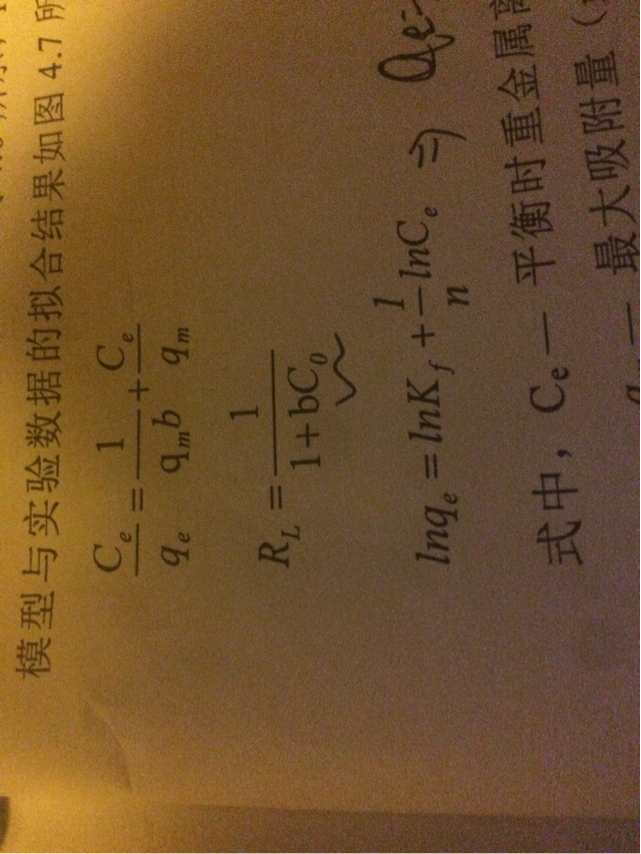 模型与实验数据的拟合结果如图 4.7 所
C_e/q_e = 1/(q_m b) + C_e/q_m
R_L = 1/(1+bC_0)
lnq_e = lnK_f + 1/n lnC_e ⇒ Qe=
式中，C_e— 平衡时重金属离
最大吸附量（